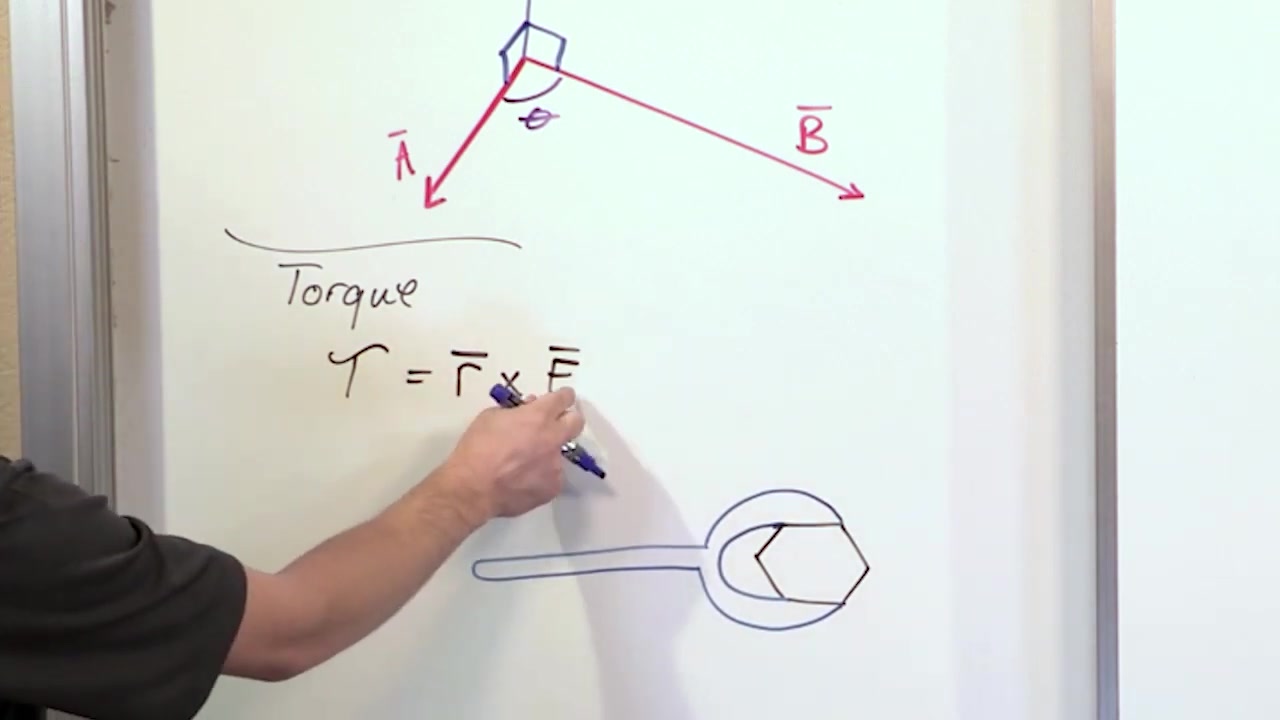 A̅
B̅
θ
Torque
τ = r̅ × F̅